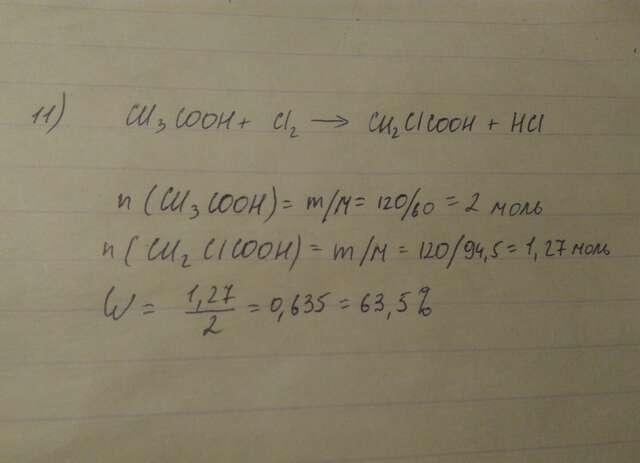 11) CH₃COOH + Cl₂ → CH₂ClCOOH + HCl
n(CH₃COOH) = m/M = 120/60 = 2 моль
n(CH₂ClCOOH) = m/M = 120/94,5 = 1,27 моль
W = 1,27/2 = 0,635 = 63,5%